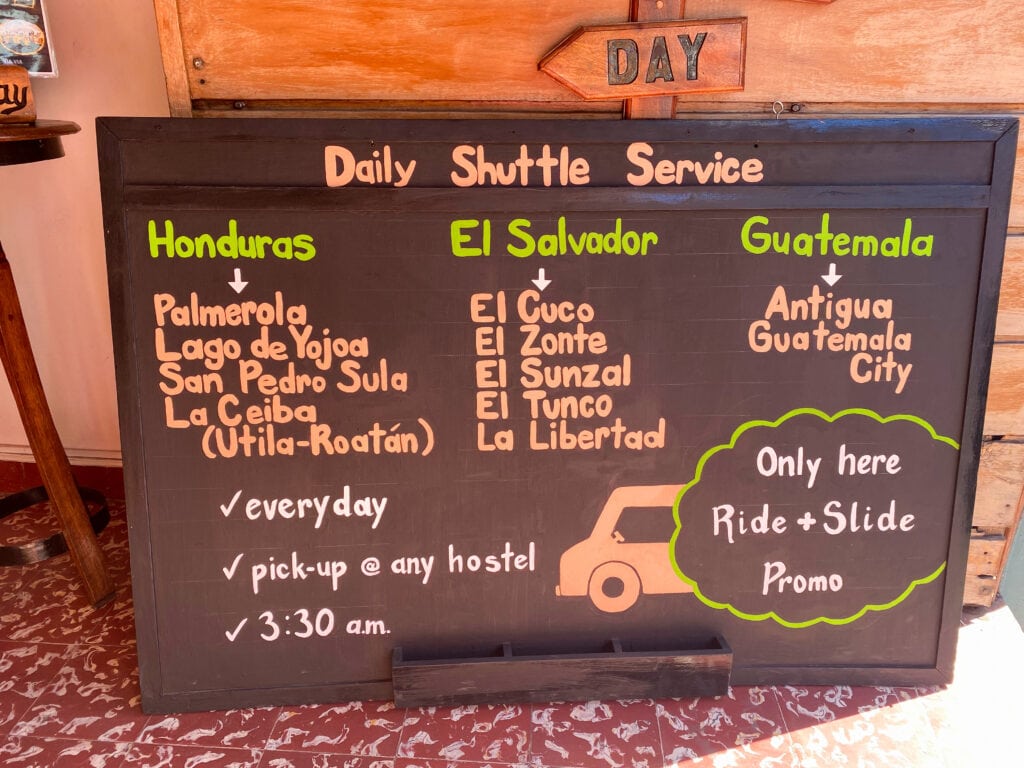 DAY
ay
Daily Shuttle Service
Honduras
Palmerola
Lago de Yojoa
San Pedro Sula
La Ceiba
(Utila-Roatán)
El Salvador
El Cuco
El Zonte
El Sunzal
El Tunco
La Libertad
Guatemala
Antigua
Guatemala
City
✓everyday
✓ pick-up @ any hostel
✓ 3:30 a.m.
Only here
Ride + Slide
Promo